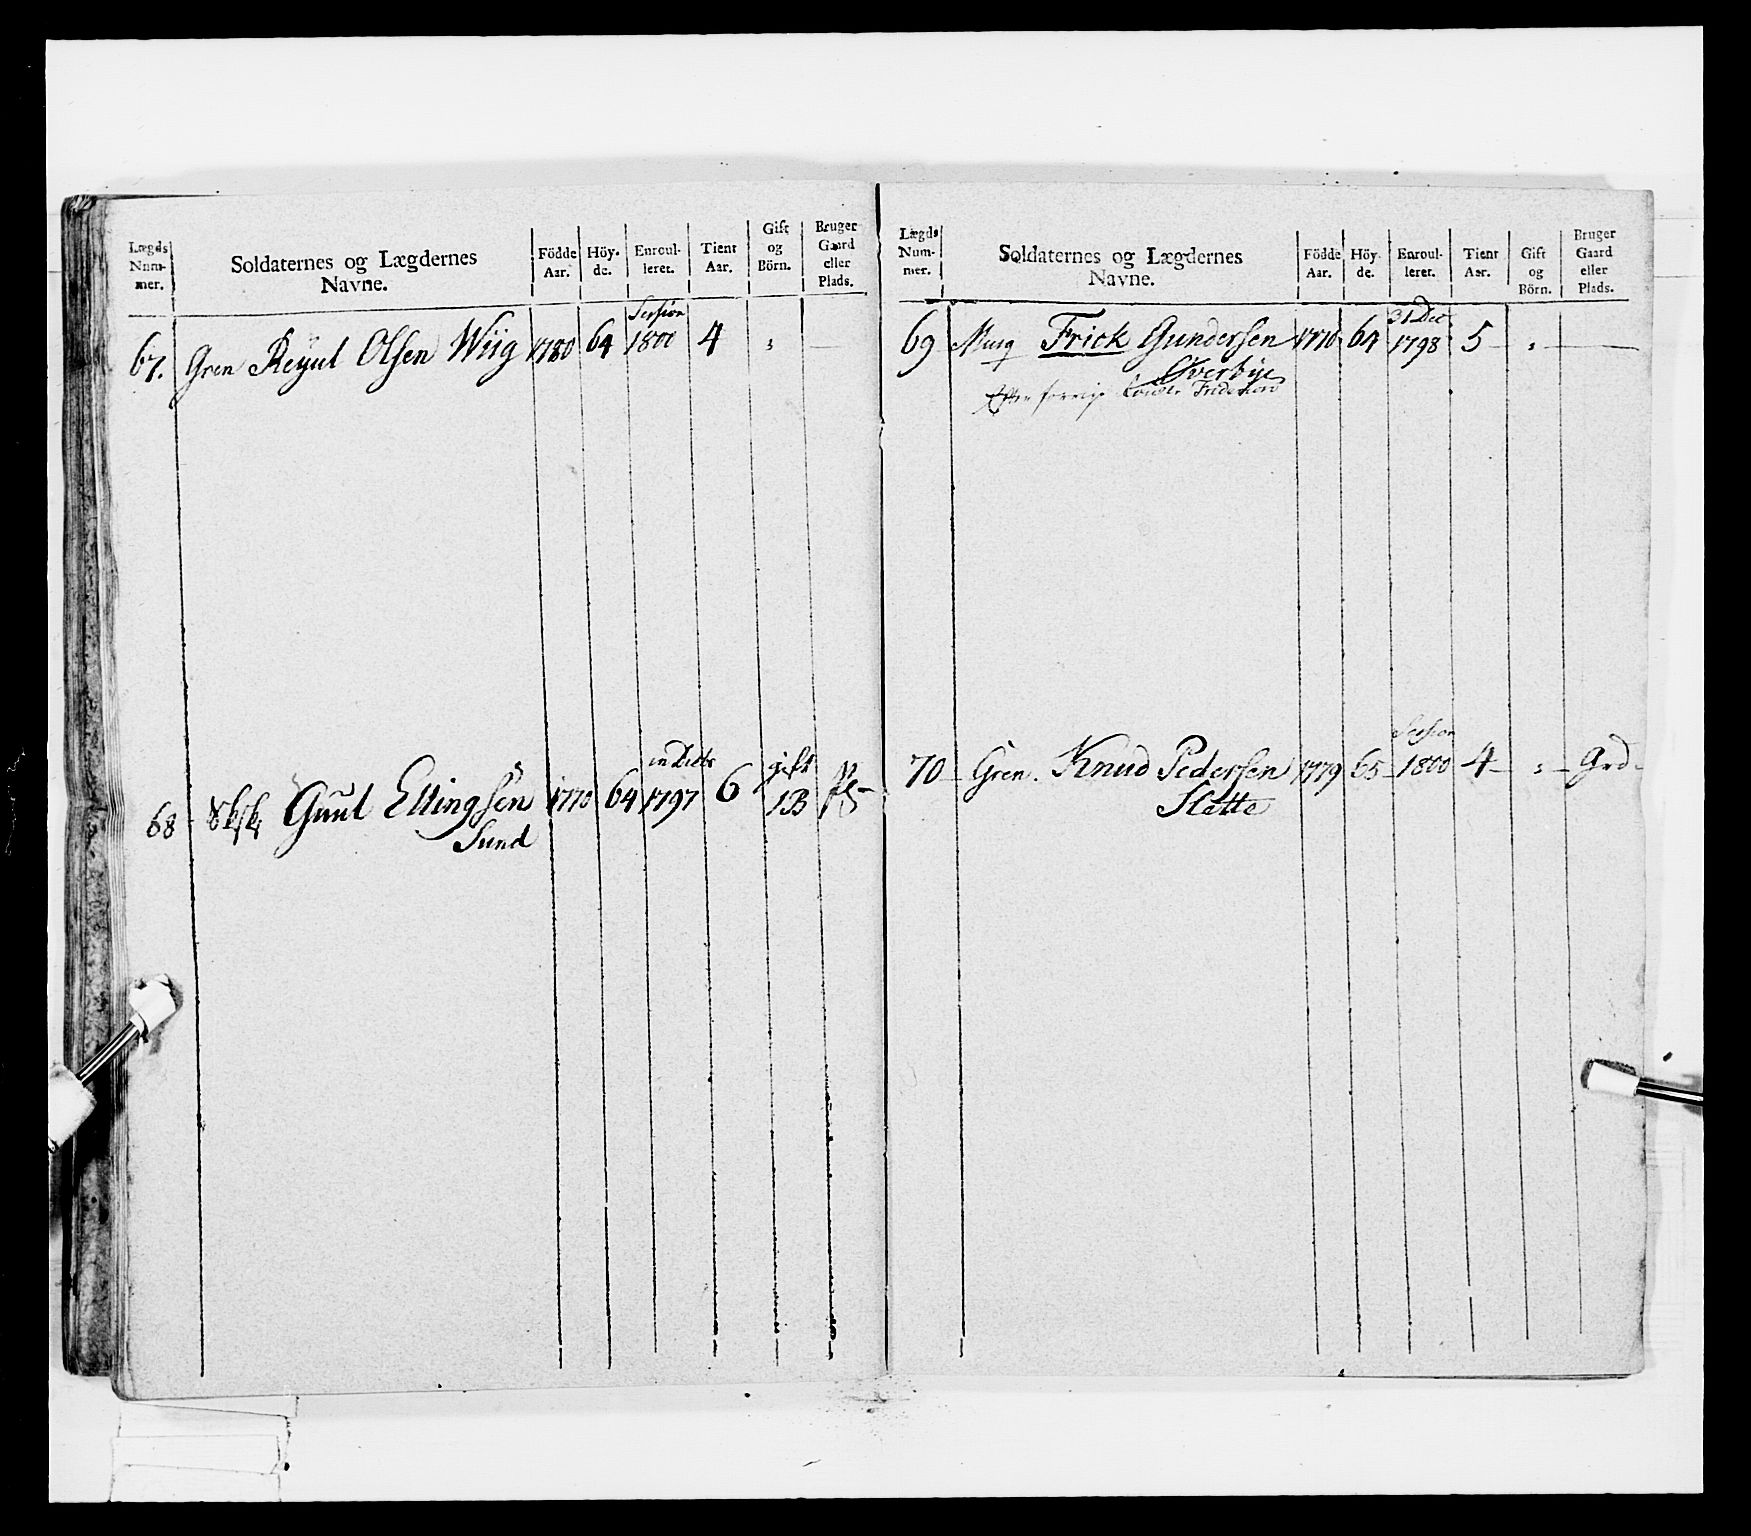 Lægds Num- mer. | Soldaternes og Lægdernes Navne. | Födde Aar. | Höy- de. | Enroul- leret. | Tient Aar. | Gift og Börn. | Bruger Gaard eller Plads.
Session
67. Gren Reyul Olsen Wiig 1780 64 1800 4 „ —
in Debr gift
68 - Gunl Ellingsen 1770 64 1797 6 1B Pls
Sund
Lægds Num- mer. | Soldaternes og Lægdernes Navne. | Födde Aar. | Höy- de. | Enroul- leret. | Tient Aar. | Gift og Börn. | Bruger Gaard eller Plads.
31 Dec
69 Musq Frick Gundersen 1770 64 1798 5 - „ —
Overbye
Efter forrige
Session
70 - Gren. Knud Pedersen 1779 65 1800 4 - „ - Grd -
Slette